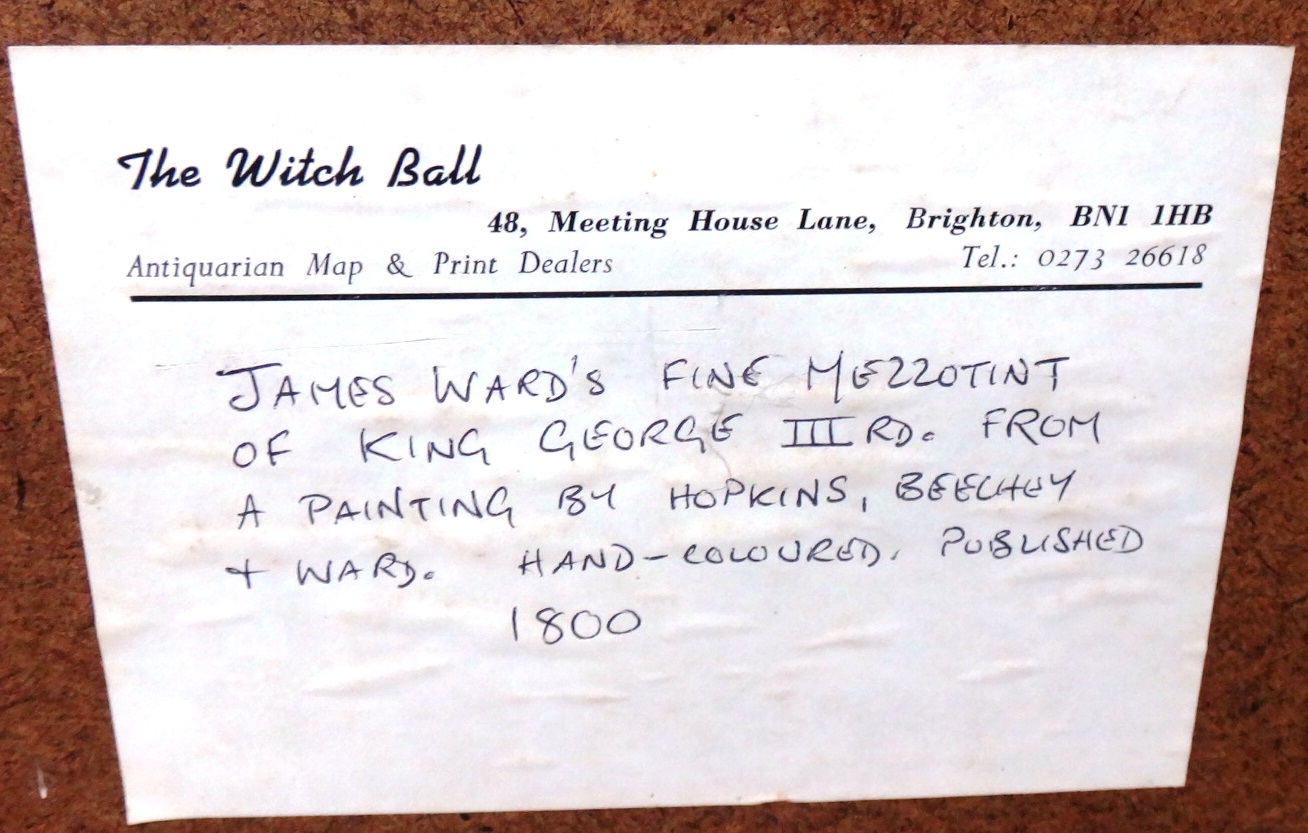 The Witch Ball
48, Meeting House Lane, Brighton, BN1 1HB
Antiquarian Map & Print Dealers Tel.: 0273 26618
JAMES WARD'S FINE MEZZOTINT
OF KING GEORGE III RD. FROM
A PAINTING BY HOPKINS, BEECHEY
+ WARD. HAND-COLOURED. PUBLISHED
1800